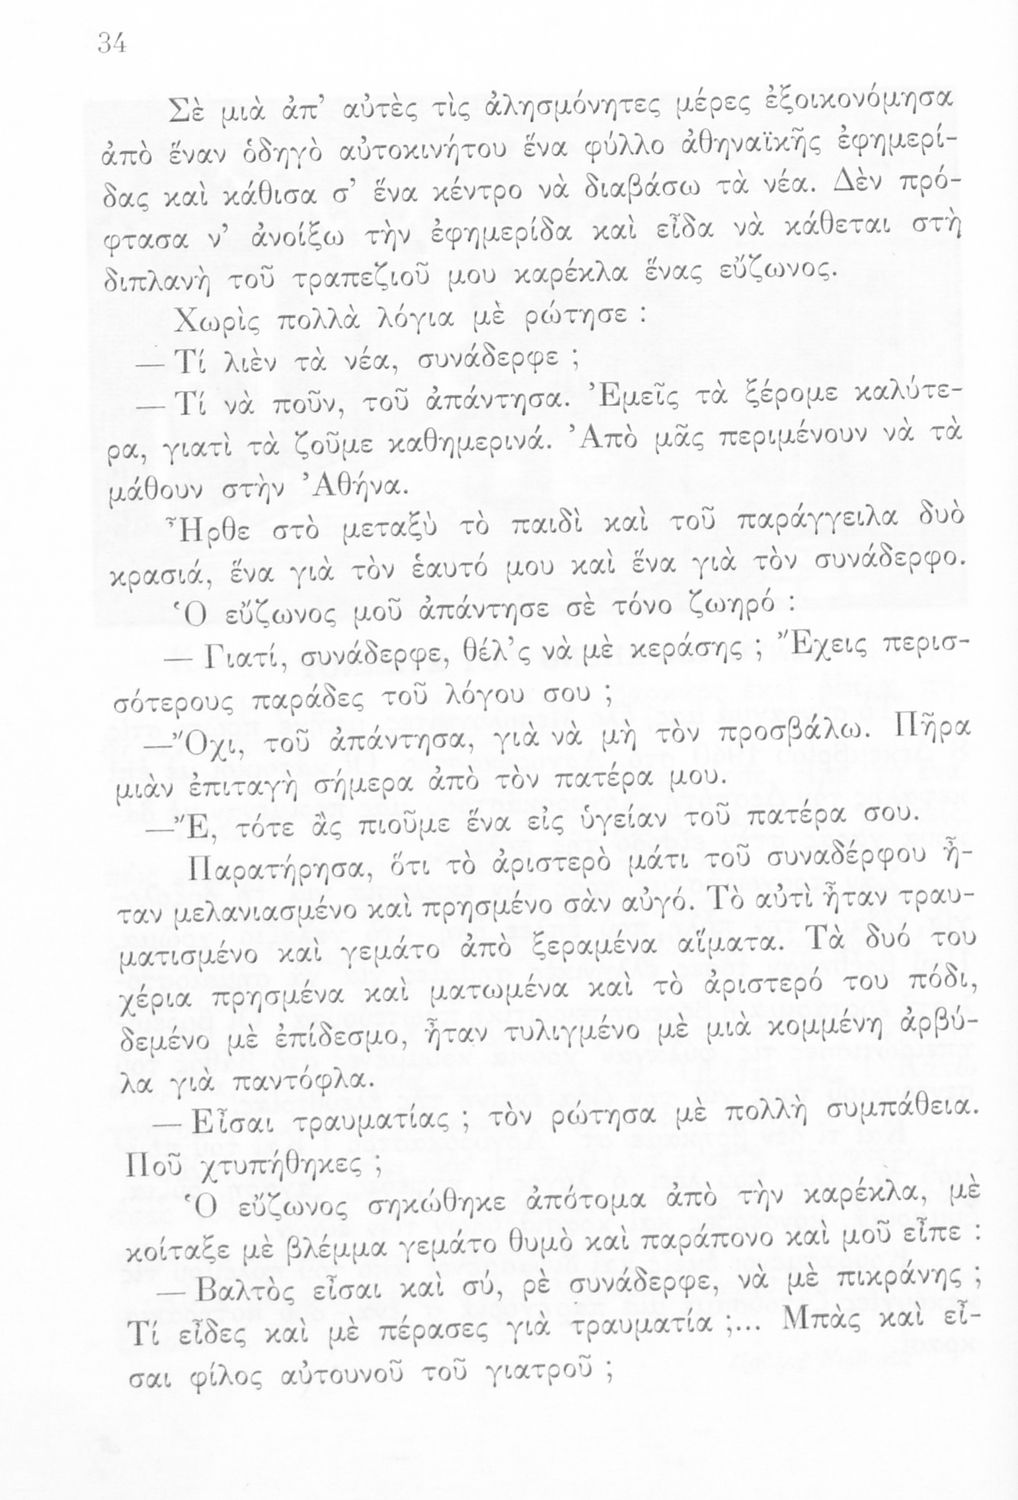 34
Σὲ μιὰ ἀπ’ αὐτὲς τὶς ἀλησμόνητες μέρες ἐξοικονόμησα
ἀπὸ ἕναν ὁδηγὸ αὐτοκινήτου ἕνα φύλλο ἀθηναϊκῆς ἐφημερί-
δας καὶ κάθισα σ’ ἕνα κέντρο νὰ διαβάσω τὰ νέα. Δὲν πρό-
φτασα ν’ ἀνοίξω τὴν ἐφημερίδα καὶ εἶδα νὰ κάθεται στὴ
διπλανὴ τοῦ τραπεζιοῦ μου καρέκλα ἕνας εὔζωνος.
Χωρὶς πολλὰ λόγια μὲ ρώτησε :
— Τί λιὲν τὰ νέα, συνάδερφε ;
— Τί νὰ ποῦν, τοῦ ἀπάντησα. Ἐμεῖς τὰ ξέρομε καλύτε-
ρα, γιατὶ τὰ ζοῦμε καθημερινά. Ἀπὸ μᾶς περιμένουν νὰ τὰ
μάθουν στὴν Ἀθήνα.
Ἦρθε στὸ μεταξὺ τὸ παιδὶ καὶ τοῦ παράγγειλα δυὸ
κρασιά, ἕνα γιὰ τὸν ἑαυτό μου καὶ ἕνα γιὰ τὸν συνάδερφο.
Ὁ εὔζωνος μοῦ ἀπάντησε σὲ τόνο ζωηρό :
— Γιατί, συνάδερφε, θέλ’ς νὰ μὲ κεράσης ; Ἔχεις περισ-
σότερους παράδες τοῦ λόγου σου ;
—Ὄχι, τοῦ ἀπάντησα, γιὰ νὰ μὴ τὸν προσβάλω. Πῆρα
μιὰν ἐπιταγὴ σήμερα ἀπὸ τὸν πατέρα μου.
—Ἔ, τότε ἂς πιοῦμε ἕνα εἰς ὑγείαν τοῦ πατέρα σου.
Παρατήρησα, ὅτι τὸ ἀριστερὸ μάτι τοῦ συναδέρφου ἦ-
ταν μελανιασμένο καὶ πρησμένο σὰν αὐγό. Τὸ αὐτὶ ἦταν τραυ-
ματισμένο καὶ γεμάτο ἀπὸ ξεραμένα αἵματα. Τὰ δυό του
χέρια πρησμένα καὶ ματωμένα καὶ τὸ ἀριστερό του πόδι,
δεμένο μὲ ἐπίδεσμο, ἦταν τυλιγμένο μὲ μιὰ κομμένη ἀρβύ-
λα γιὰ παντόφλα.
— Εἶσαι τραυματίας ; τὸν ρώτησα μὲ πολλὴ συμπάθεια.
Ποῦ χτυπήθηκες ;
Ὁ εὔζωνος σηκώθηκε ἀπότομα ἀπὸ τὴν καρέκλα, μὲ
κοίταξε μὲ βλέμμα γεμάτο θυμὸ καὶ παράπονο καὶ μοῦ εἶπε :
— Βαλτὸς εἶσαι καὶ σύ, ρὲ συνάδερφε, νὰ μὲ πικράνης ;
Τί εἶδες καὶ μὲ πέρασες γιὰ τραυματία ;... Μπὰς καὶ εἶ-
σαι φίλος αὐτουνοῦ τοῦ γιατροῦ ;